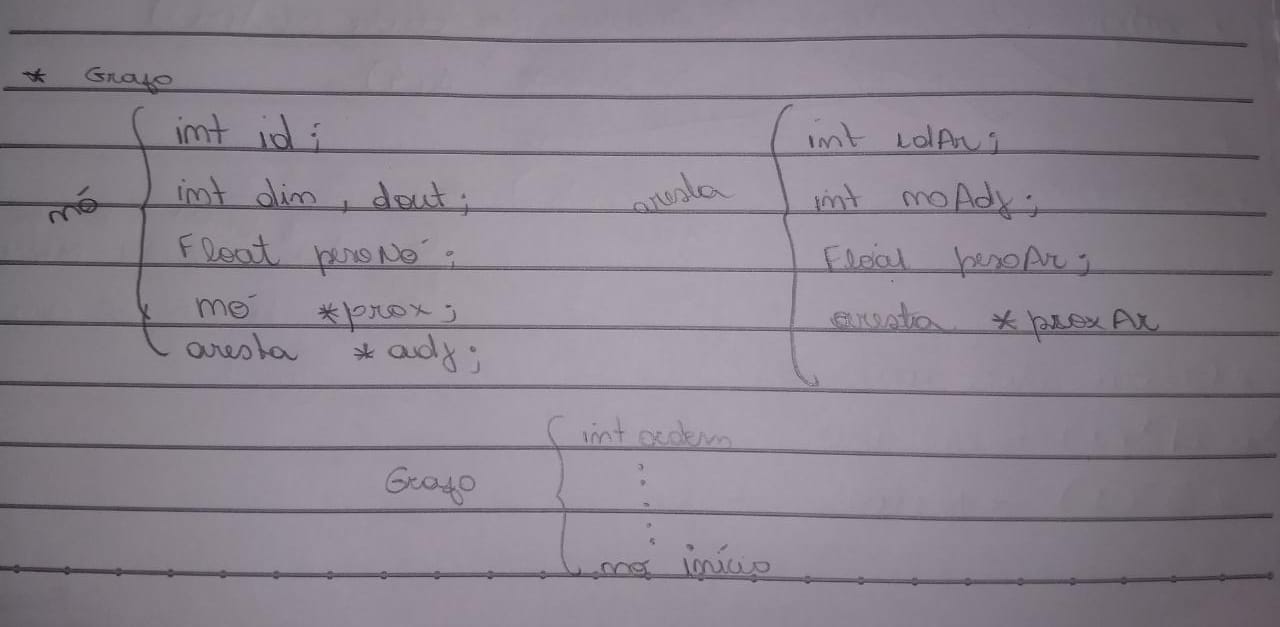 * Grafo
nó
int id;
int din, dout;
Float pesoNó;
nó *prox;
aresta *adj;
aresta
int idAr;
int noAdj;
Float pesoAr;
aresta *proxAr
Grafo
int ordem
nó início